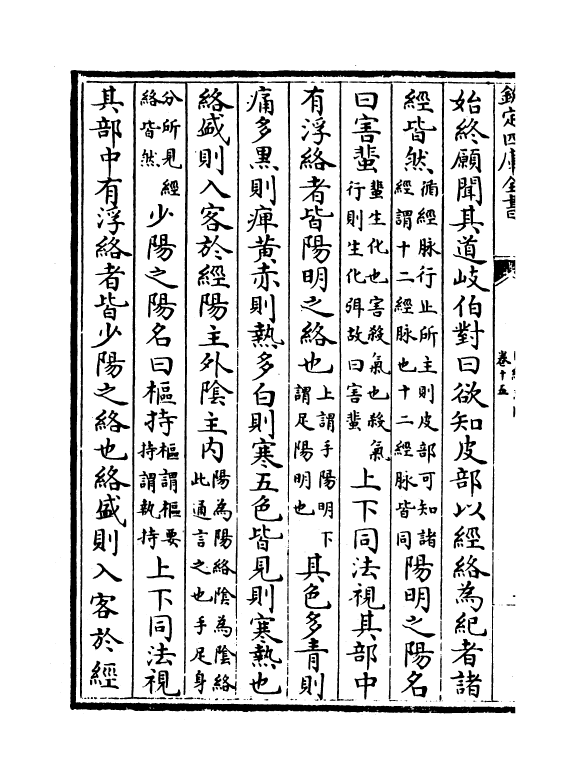 欽定四庫全書
卷十五
始終願聞其道岐伯對曰欲知皮部以經絡為紀者諸
經皆然循經脈行止所主則皮部可知諸經謂十二經脈也十二經脈皆同陽明之陽名
曰害蜚蜚生化也害殺氣也殺氣行則生化弭故曰害蜚上下同法視其部中
有浮絡者皆陽明之絡也上謂手陽明下謂足陽明也其色多青則
痛多黑則痺黃赤則熱多白則寒五色皆見則寒熱也
絡盛則入客於經陽主外陰主內陽為陽絡陰為陰絡此通言之也手足身
分所見經絡皆然少陽之陽名曰樞持樞謂樞要持謂執持上下同法視
其部中有浮絡者皆少陽之絡也絡盛則入客於經